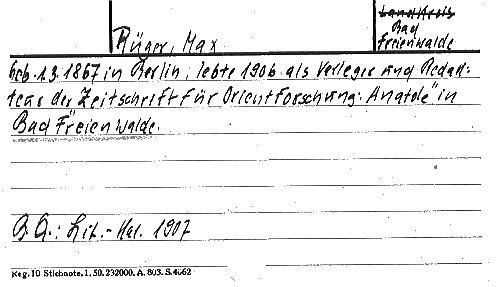 Landkreis
Bad
Freienwalde
Rüger, Max
Geb. 1.3.1867 in Berlin; lebte 1906 als Verleger und Redak-
teur der Zeitschrift für Orientforschung "Anatole" in
Bad Freienwalde.
B.Q.: Lit.-Kal. 1907
Keg. 10 Stichnote. 1. 50. 232000. A. 803. S. 4662